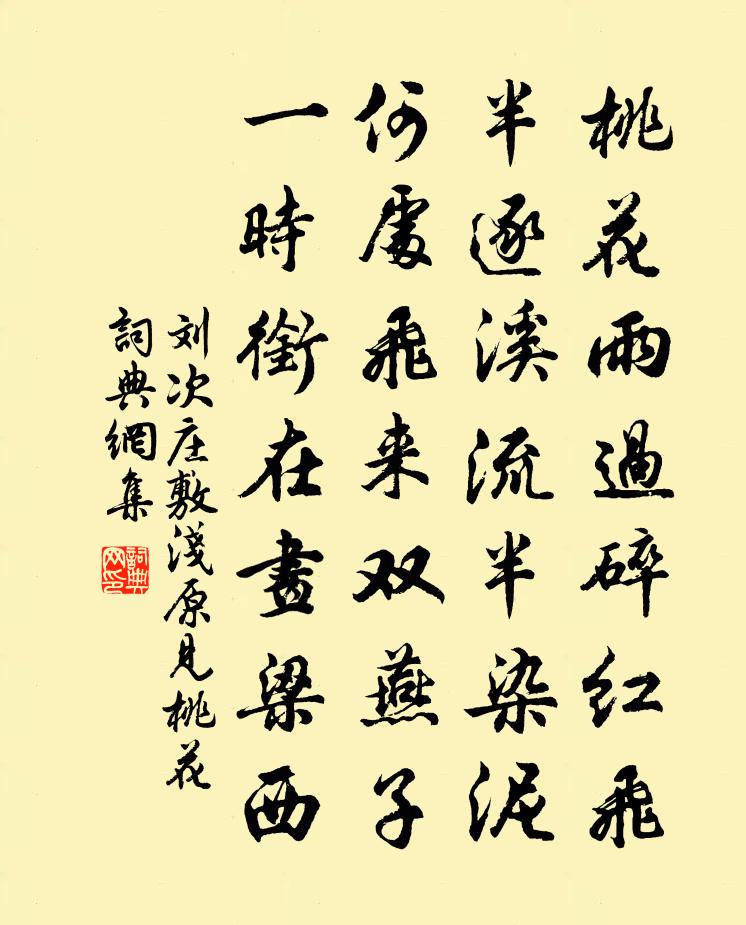 桃花雨過碎红飛
半逐溪流半染泥
何處飛来双燕子
一時銜在畫梁西
刘次庄敷淺原見桃花
詞典網集
詞典网印